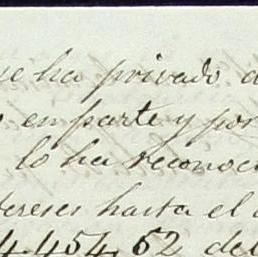 ue ha privado d
o en parte y por
lo ha reconoc
tereses hasta el d
4.454,62 del